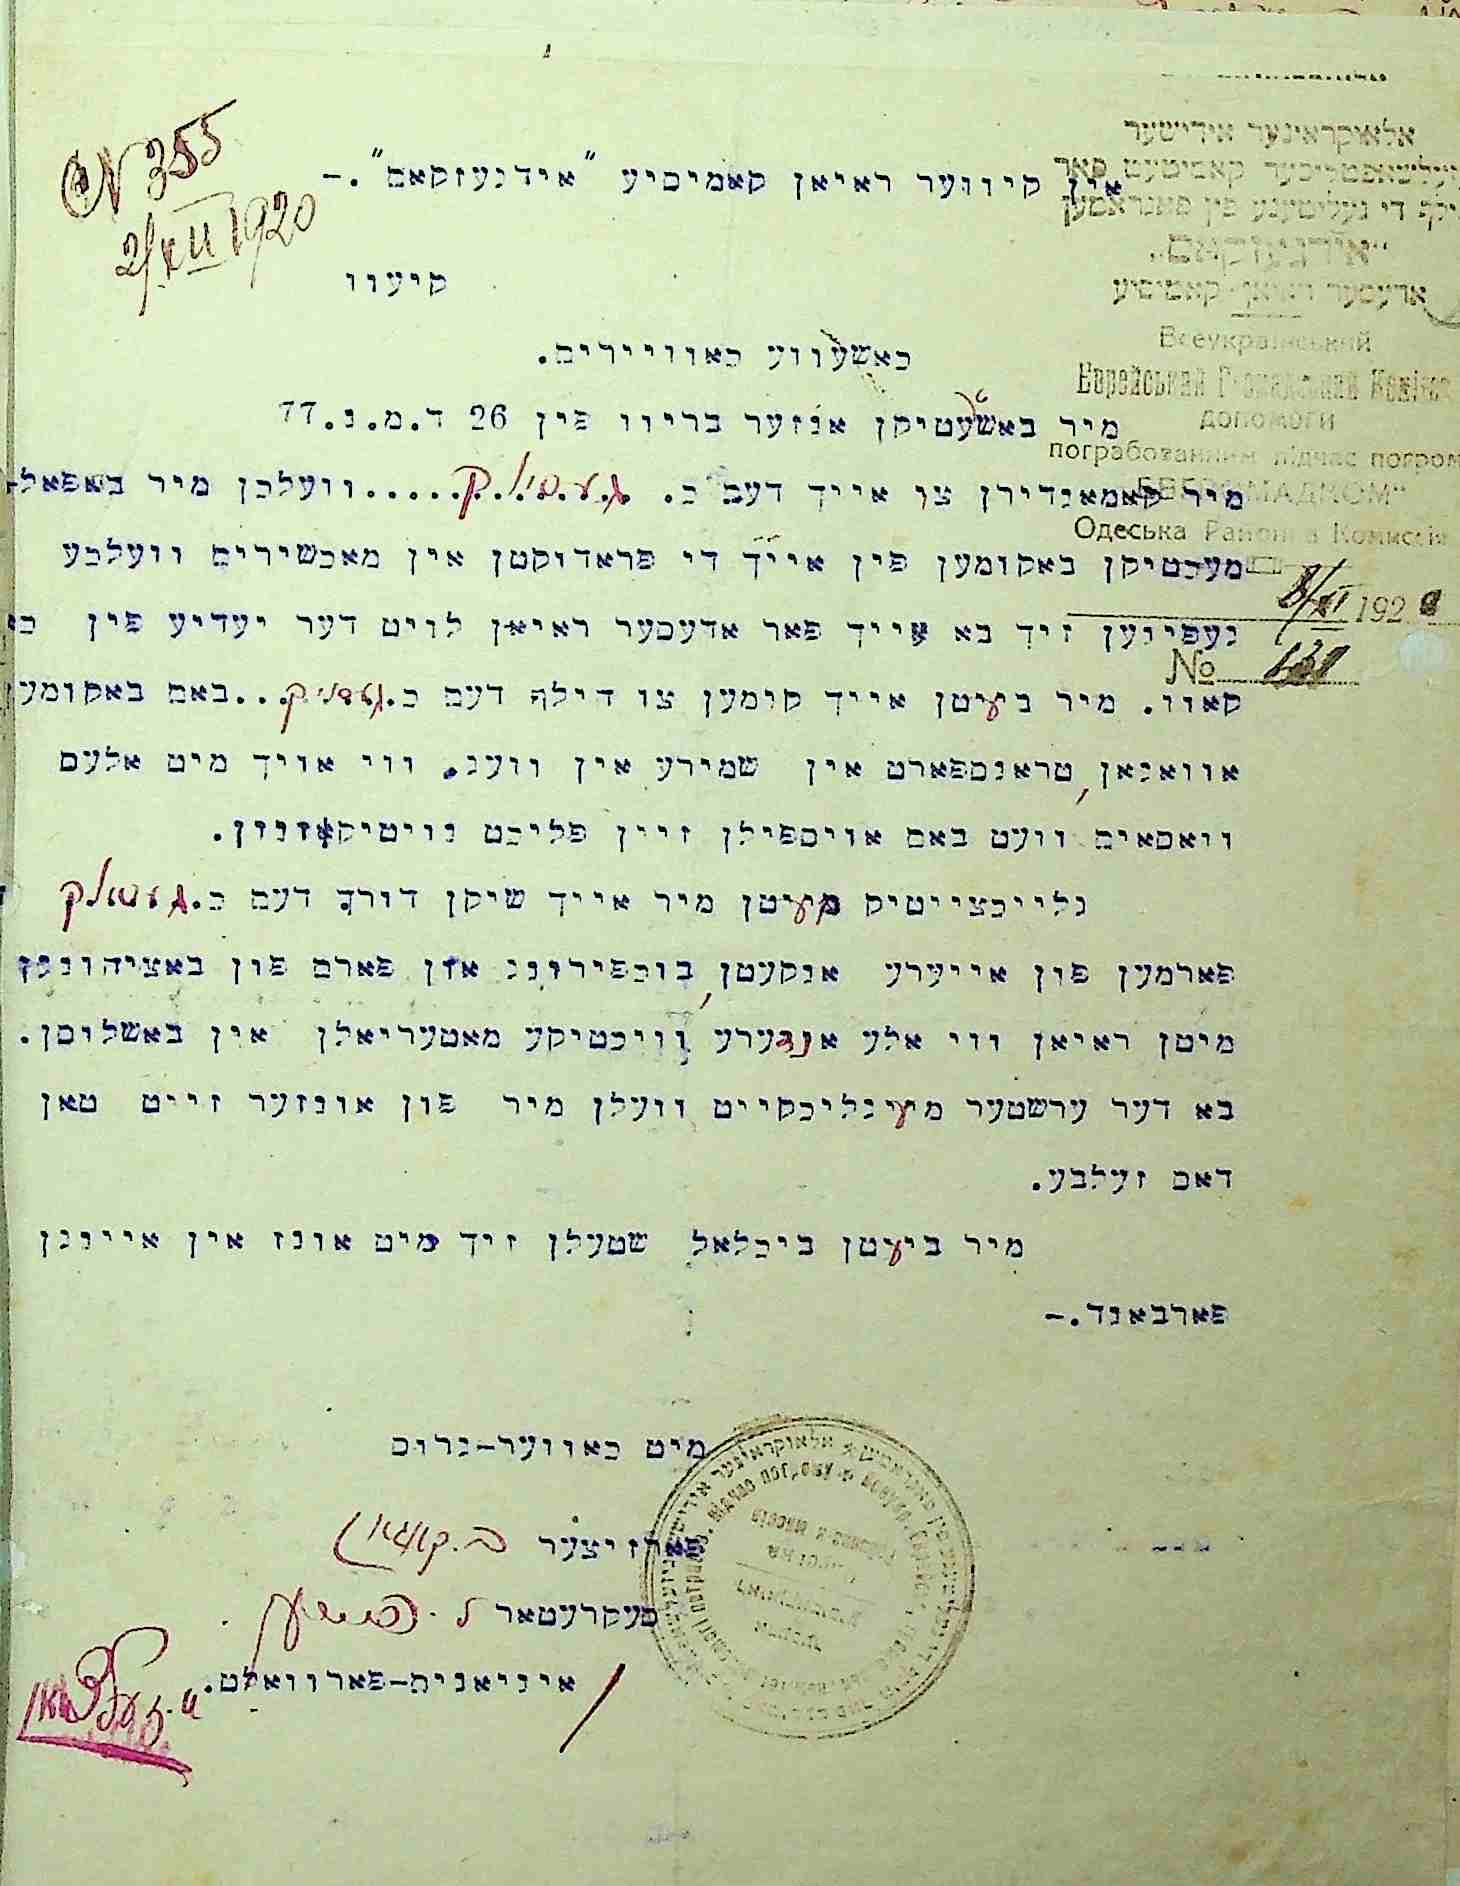 № 355
2/XII 1920
אלאוקראינער אידישער
געזעלשאפטליכער קאמיטעט פאר
הילף די געליטענע פין פאגראמען
„אידגעזקאם“
אדעסער ראיאן-קאמיסיע
Всеукраїнський
Єврейський Громадський Комітет
допомоги
пограбованним підчас погром
„ЕВГРОМАДКОМ“
Одеська Районна Комиссія
8/XII 1920
№ 131
אין קיווער ראיאן קאמיסיע "אידגעזקאם".-
קיעוו
כאשעווע כאוויירים.
מיר באשטעטיקן אנזער בריוו פין 26 ד.מ.נ.77
מיר קאמאנדירן צו אייך דעם כ. .......וועלכן מיר באפאל-
מעכטיקן באקומען פין אייך די פראדוקטן אין מאכשירים וועלכע
געפינען זיך בא אייך פאר אדעסער ראיאן לויט דער יעדיע פין כא
קאוו. מיר בעיטן אייך קימען צו הילף דעם כ. ...באם באקומען
אוואגאן, טראנספארט אין שמירע אין וועג. ווי אויך מיט אלעם
וויאסאים וועט באם אויספילן זיין פליכט נויטיק זיין.
גלייכצייטיק בעיטן מיר אייך שיקן דורך דעם כ.
פארמען פון אייערע אנקעטן, בוכפירונג און פארם פון באציהונגן
מיטן ראיאן ווי אלע אנדערע וויכטיקע מאטעריאלן אין באשליסן.
בא דער ערשטער מעיגליכקייט וועלן מיר פון אונזער זייט טאן
דאס זעלבע.
מיר בעיטן ביכלאל שטעלן זיך מיט אונז אין איינגן
פארבאנד.-
מיט כאווער-גרוס
פארזיצער ב. קאגאן
סעקרעטאר ל.
איניאנים-פארוואלט.